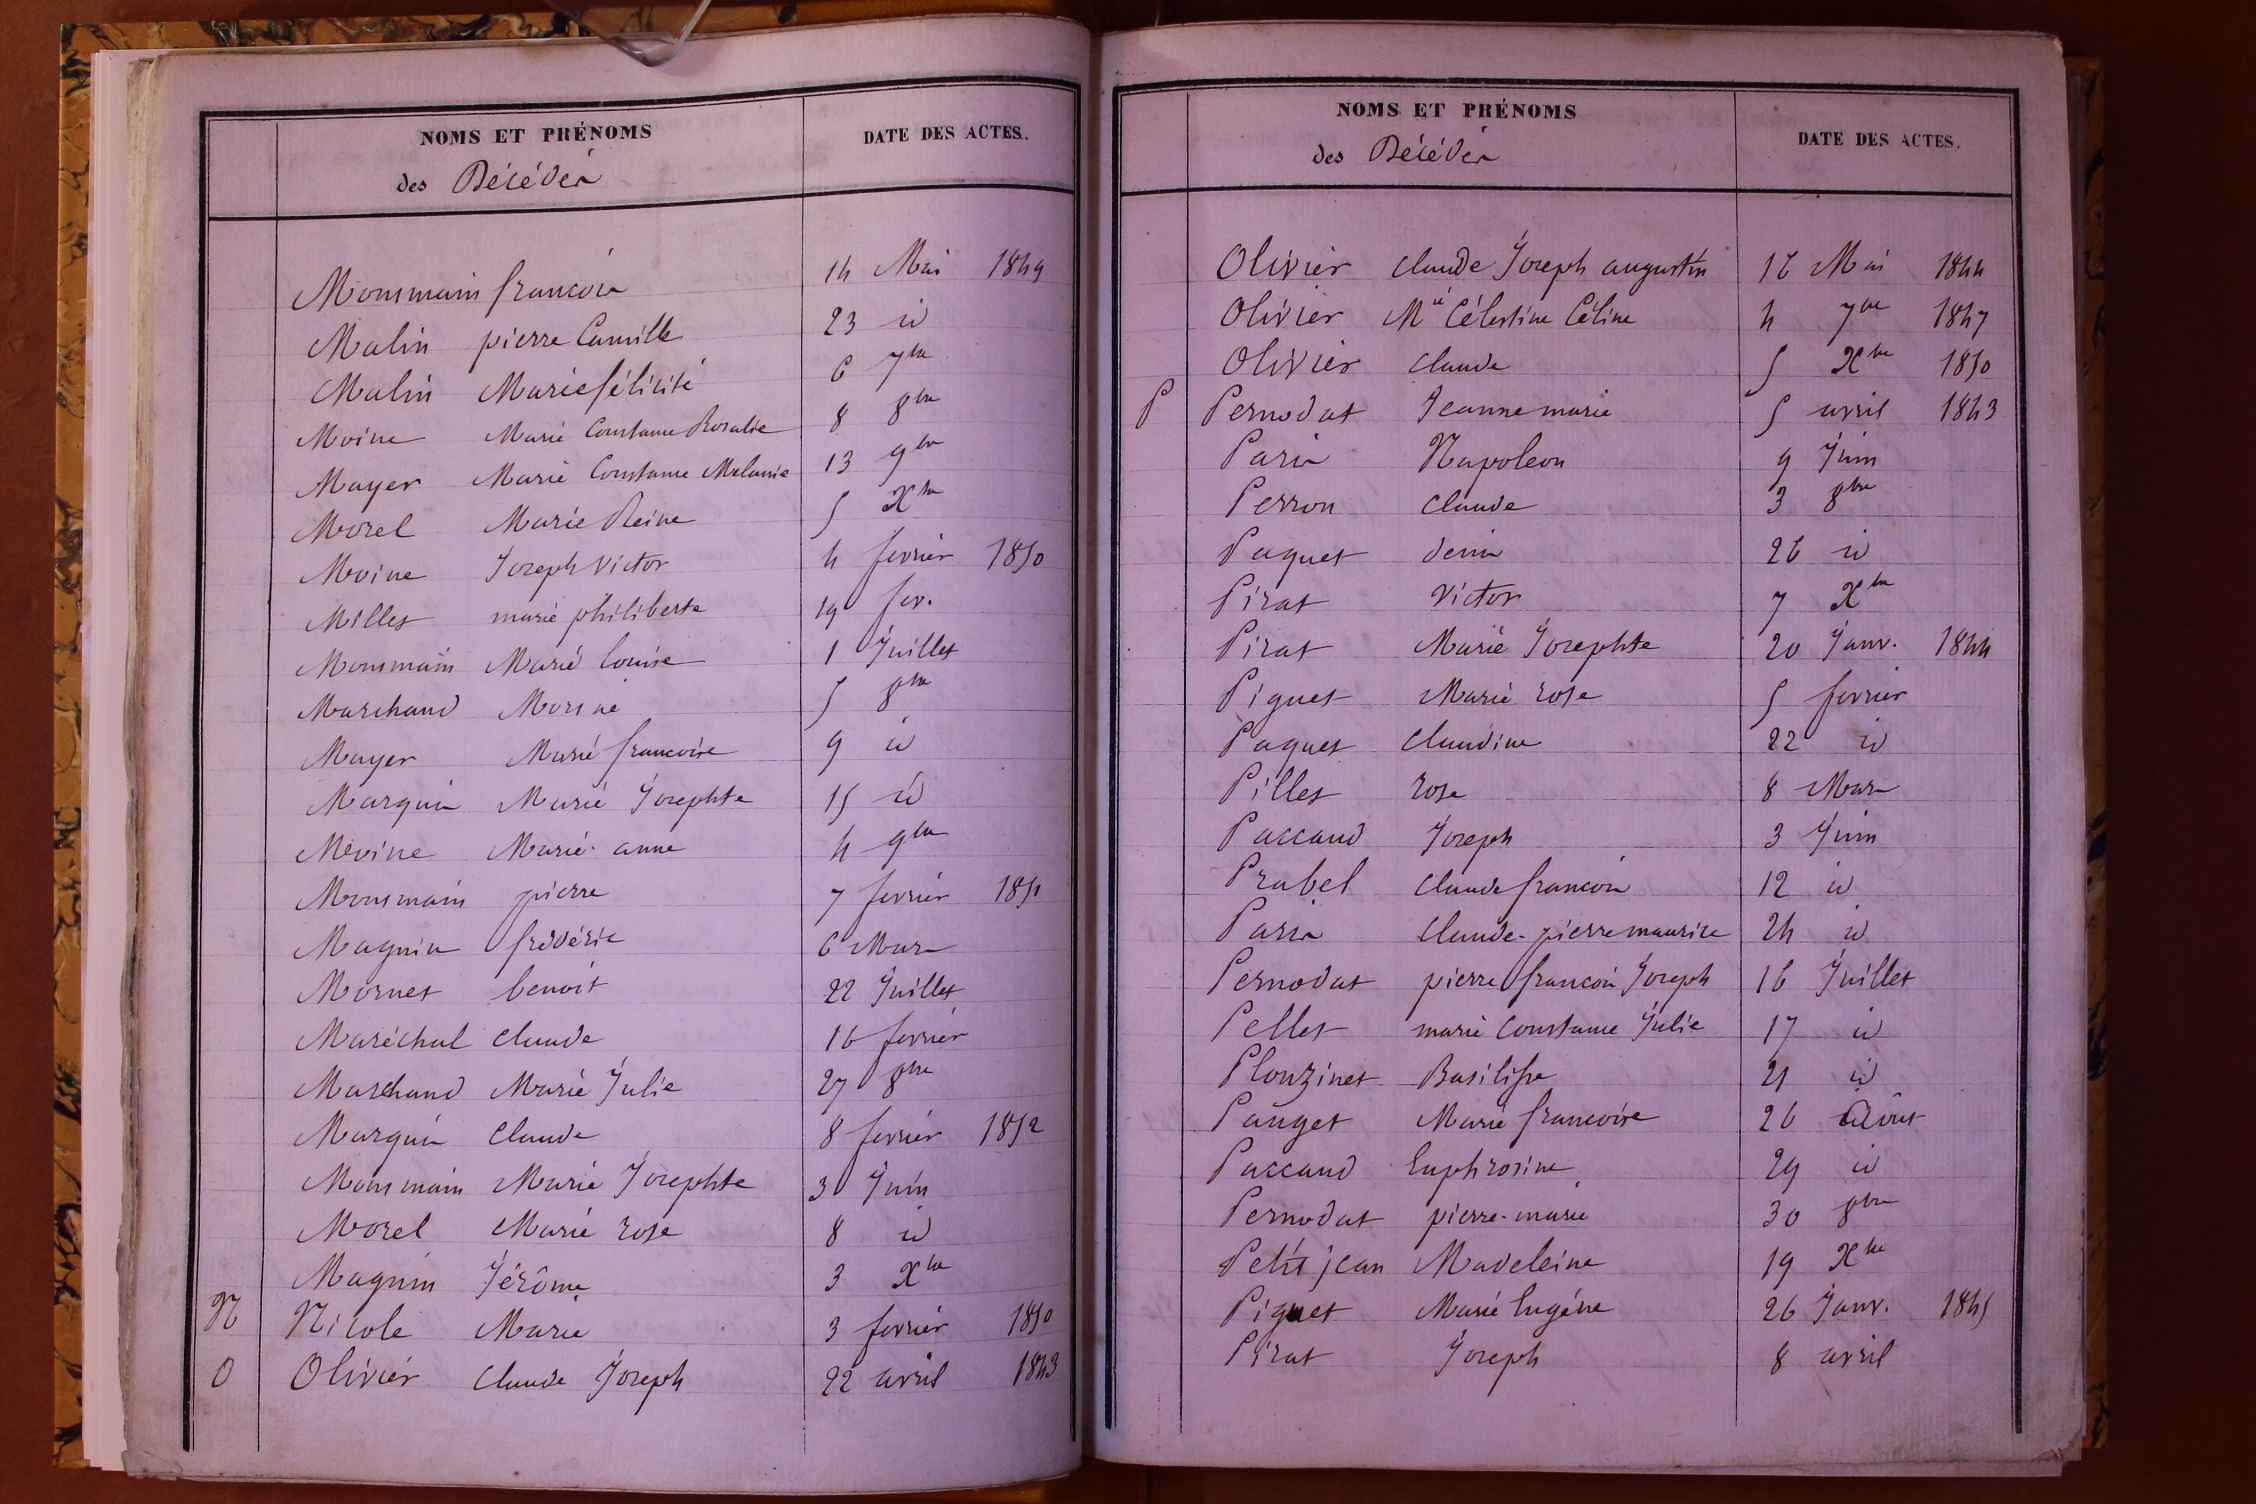 NOMS ET PRÉNOMS DATE DES ACTES.
des Décédés
Monsmain francois 14 Mai 1849
Malin pierre Camille 23 id
Malin Marie félicité 6 7bre
Moine Marie Constance Rosalie 8 8bre
Mayer Marie Constance Melanie 13 9bre
Morel Marie Reine 5 Xbre
Moine Joseph Victor 4 fevrier 1850
Millet marie philiberte 19 fev.
Monsmain Marie louise 1 Juillet
Marchand 5 8bre
Mayer Marie francoise 9 id
Marguin Marie Josephte 15 id
Moine Marie anne 4 9bre
Monsmain pierre 7 fevrier 1851
Magnin frédéric 6 Mars
Mornet benoit 22 Juillet
Maréchal claude 16 fevrier
Marchand Marie Julie 27 8bre
Marguin Claude 8 fevrier 1852
Monsmain Marie Josephte 3 Juin
Morel Marie rose 8 id
Magnin Jérôme 3 Xbre
N Nicole Marie 3 fevrier 1850
O Olivier Claude Joseph 22 avril 1843
NOMS ET PRÉNOMS DATE DES ACTES.
des Décédés
Olivier claude Joseph augustin 16 Mai 1844
Olivier Mie Célestine Céline 4 7bre 1847
Olivier claude 5 Xbre 1850
P Pernodat Jeanne marie 5 avril 1843
Paris Napoleon 9 Juin
Perron claude 3 8bre
Paquet denis 26 id
Pirat Victor 7 Xbre
Pirat Marie Josephte 20 Janv. 1844
Piguet Marie rose 5 fevrier
Paquet claudine 22 id
Pillet rose 8 Mars
Paccaud Joseph 3 Juin
Prabel claude francois 12 id
Paris claude-pierre maurice 24 id
Pernodat pierre francois Joseph 16 Juillet
Pellet marie Constance Julie 17 id
Plouzinet Basilisse 21 id
Pauget Marie francoise 26 Août
Paccaud Euphrosine 29 id
Pernodat pierre-marie 30 8bre
Petit jean Madeleine 19 Xbre
Piguet Marie Eugéne 26 Janv. 1845
Pirat Joseph 8 avril